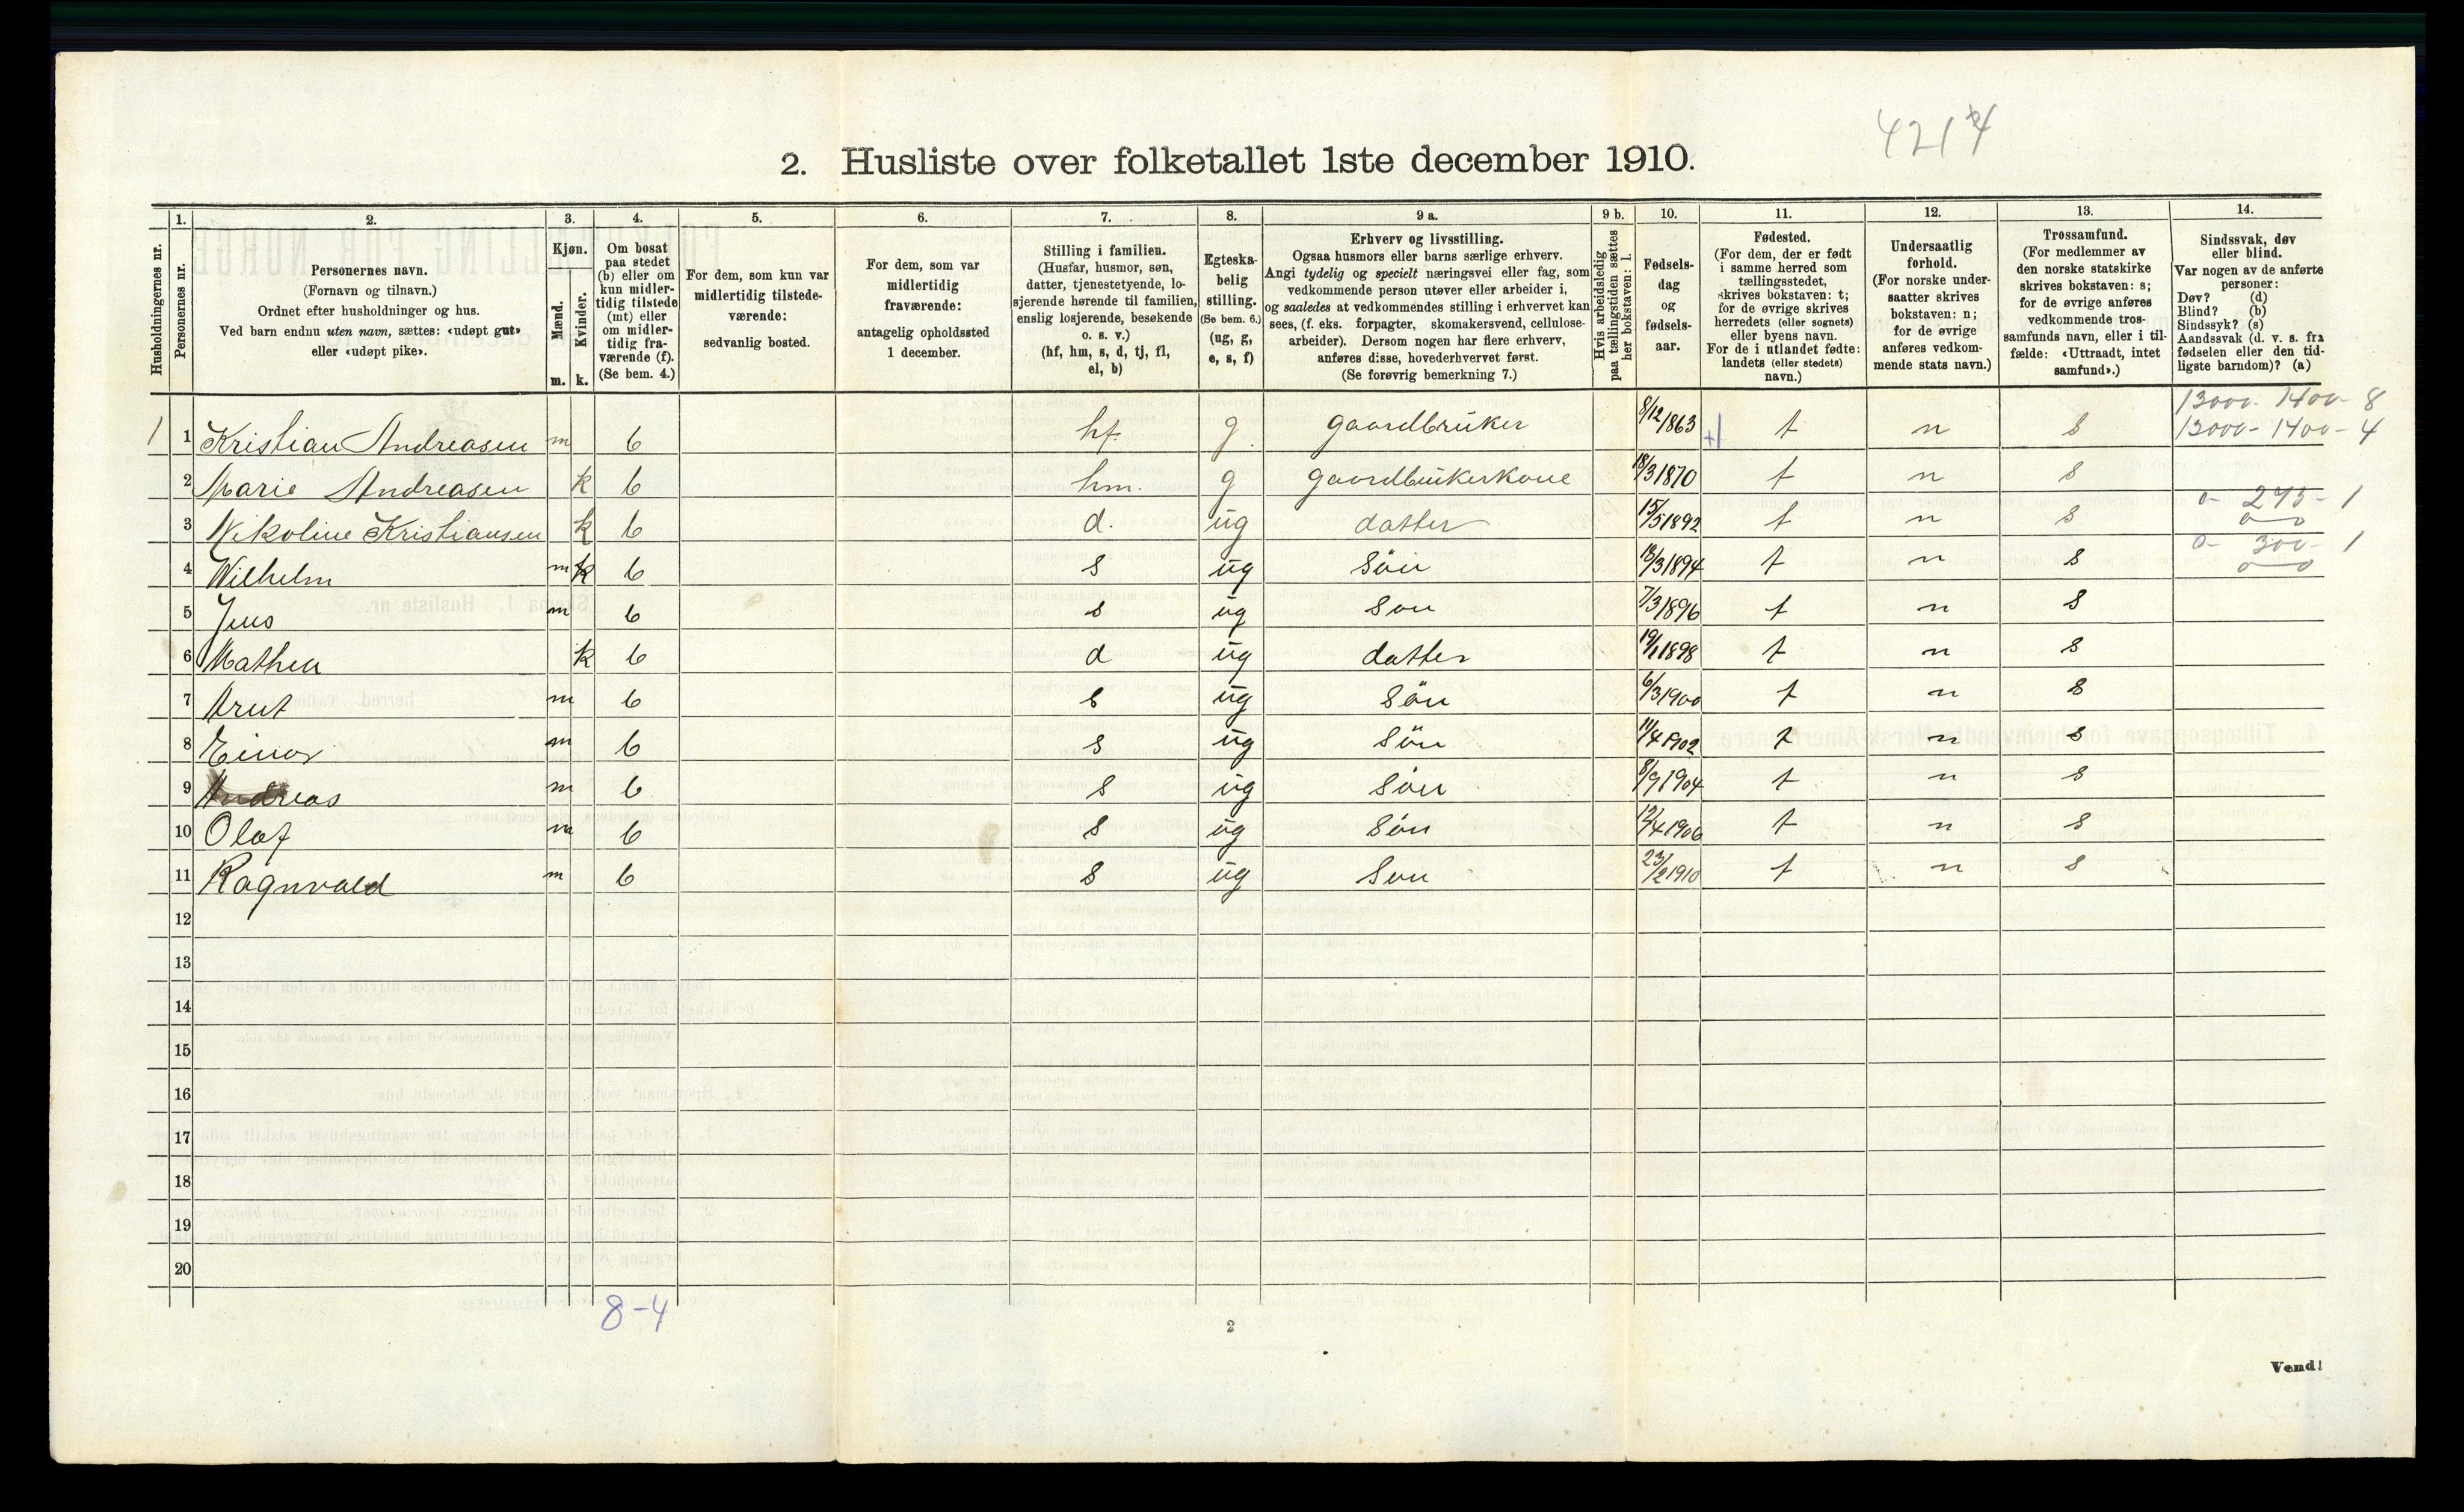 4217
2. Husliste over folketallet 1ste december 1910.
Husholdningernes nr.
1. Personernes nr.
2. Personernes navn.
(Fornavn og tilnavn.)
Ordnet efter husholdninger og hus.
Ved barn endnu uten navn, sættes: «udøpt gut»
eller «udøpt pike».
3. Kjøn.
Mænd. m.
Kvinder. k.
4. Om bosat
paa stedet
(b) eller om
kun midler-
tidig tilstede
(mt) eller
om midler-
tidig fra-
værende (f).
(Se bem. 4.)
5. For dem, som kun var
midlertidig tilstede-
værende:
sedvanlig bosted.
6. For dem, som var
midlertidig
fraværende:
antagelig opholdssted
1 december.
7. Stilling i familien.
(Husfar, husmor, søn,
datter, tjenestetyende, lo-
sjerende hørende til familien,
enslig losjerende, besøkende
o. s. v.)
(hf, hm, s, d, tj, fl,
el, b)
8. Egteska-
belig
stilling.
(Se bem. 6.)
(ug, g,
e, s, f)
9 a. Erhverv og livsstilling.
Ogsaa husmors eller barns særlige erhverv.
Angi tydelig og specielt næringsvei eller fag, som
vedkommende person utøver eller arbeider i,
og saaledes at vedkommendes stilling i erhvervet kan
sees, (f. eks. forpagter, skomakersvend, cellulose-
arbeider). Dersom nogen har flere erhverv,
anføres disse, hovederhvervet først.
(Se forøvrig bemerkning 7.)
9 b. Hvis arbeidsledig
paa tællingstiden sættes
her bokstaven: l.
10. Fødsels-
dag
og
fødsels-
aar.
11. Fødested.
(For dem, der er født
i samme herred som
tællingsstedet,
skrives bokstaven: t;
for de øvrige skrives
herredets (eller sognets)
eller byens navn.
For de i utlandet fødte:
landets (eller stedets)
navn.)
12. Undersaatlig
forhold.
(For norske under-
saatter skrives
bokstaven: n;
for de øvrige
anføres vedkom-
mende stats navn.)
13. Trossamfund.
(For medlemmer av
den norske statskirke
skrives bokstaven: s;
for de øvrige anføres
vedkommende tros-
samfunds navn, eller i til-
fælde: «Uttraadt, intet
samfund».)
14. Sindssvak, døv
eller blind.
Var nogen av de anførte
personer:
Døv? (d)
Blind? (b)
Sindssyk? (s)
Aandssvak (d. v. s. fra
fødselen eller den tid-
ligste barndom)? (a)
13000- 1400- 8
1 1 Kristian Andreasen m b hf. g gaardbruker 8/12 1863 +1 t n s 13000- 1400- 4
2 Marie Andreasen k b hm. g gaardbrukerkone 18/3 1870 t n s
0- 245- 1
3 Nikoline Kristiansen k b d. ug datter 15/5 1892 t n s 0 0
0- 300- 1
4 Wilhelm m k b s ug Sön 13/3 1894 t n s 0 0
5 Jens m b s ug Son 7/3 1896 t n s
6 Mathea k b d ug datter 19/1 1898 t n s
7 Arut m b s ug Sön 6/3 1900 t n s
8 Einar m b s ug Sön 11/4 1902 t n s
9 Andreas m b s ug Sön 8/9 1904 t n s
10 Olaf m b s ug Sön 12/4 1906 t n s
11 Ragnvald m b s ug Son 23/2 1910 t n s
12
13
14
15
16
17
18
19
20
8-4
2
Vend!